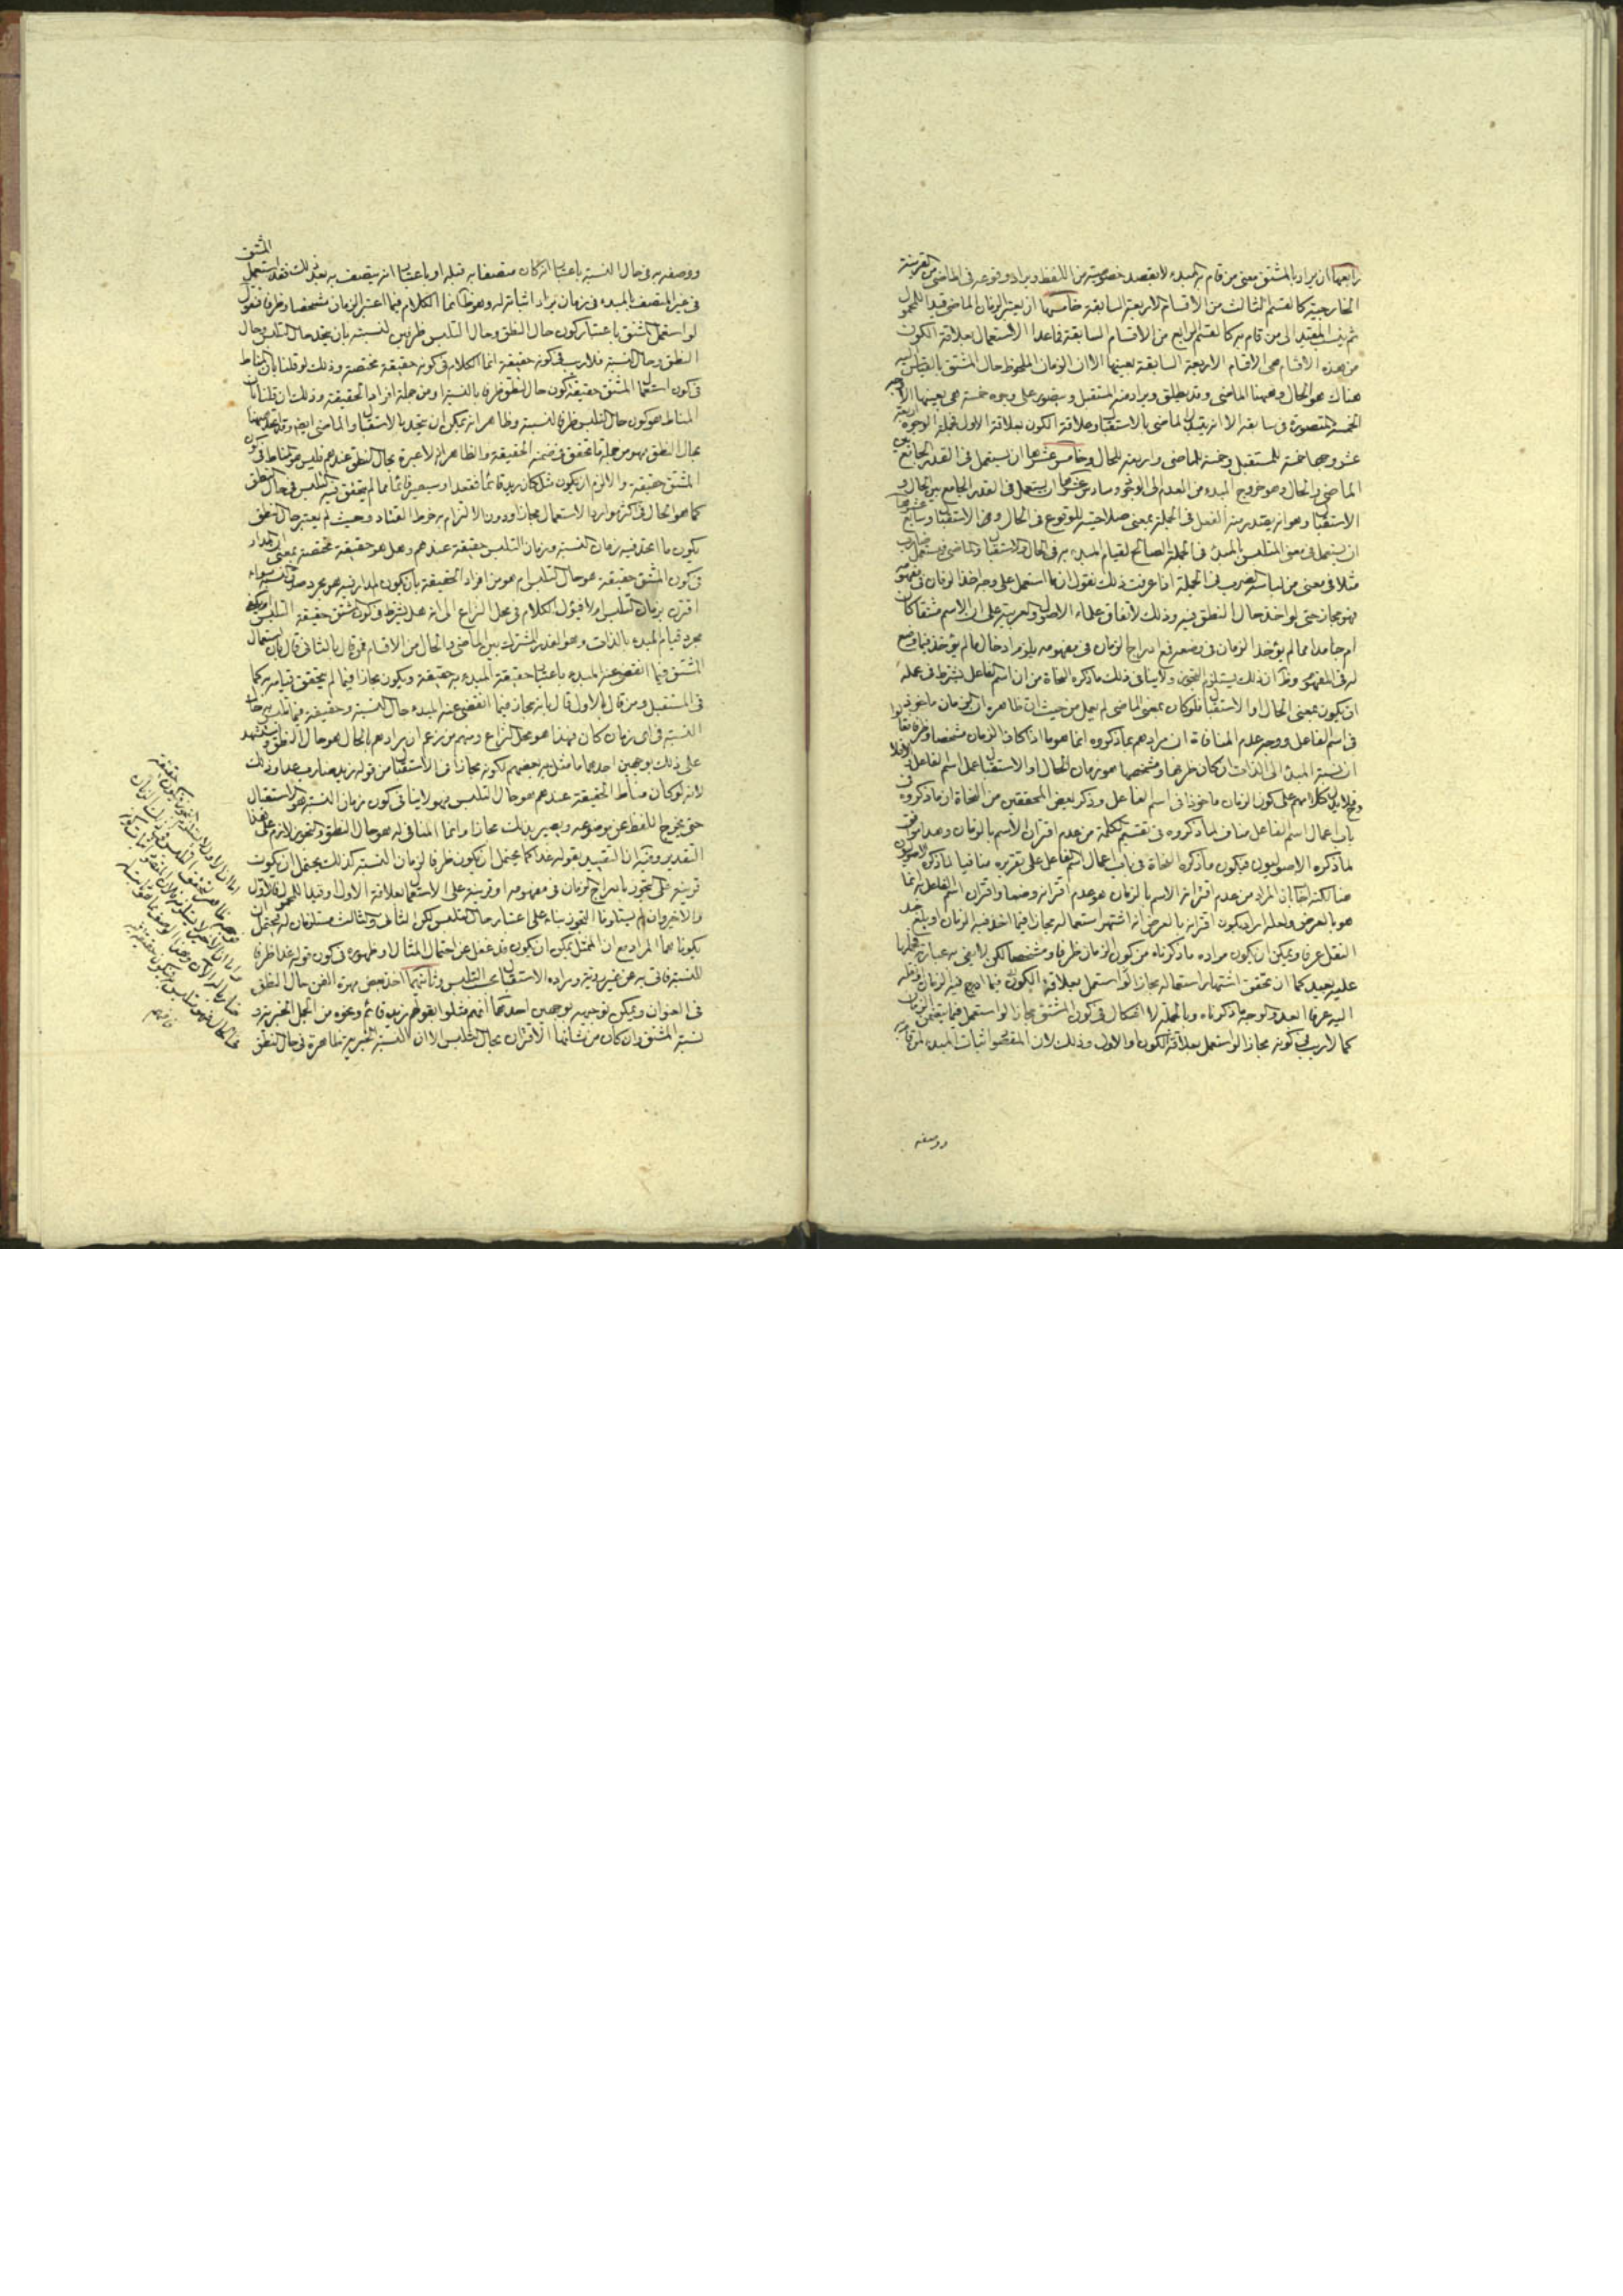 رابعها ان يراد بالمشتق معنى من قام به المبدء لا بقصد خصوصية من اللفظ ويراد وقوعه في الماضى من القرينة
الخارجية كالقسم الثالث من الاقسام الاربعة السابقة خامسها ان يعتبر الزمان الماضى قيدا للمحمول
ثم ينسب المقيد الى من قام به كالقسم الرابع من الاقسام السابقة فما عدا الاستعمال بعلاقة الكون
من هذه الاقسام هى الاقسام الاربعة السابقة بعينها الا ان الزمان الملحوظ حال المشتق بالقياس اليه
هناك هو الحال وههنا الماضى وقد يطلق ويراد منه المستقبل ويتصور على وجوه خمسة هى بعينها الاوجه
الخمسة المتصورة فى سابقه الا انه يتبدل الماضى بالاستقبال وعلاقة الكون بعلاقة الاول فجملة الوجوه اربعة
عشر وجها خمسة للمستقبل وخمسة للماضى واربعة للحال وخامس عشرها ان يستعمل فى القدر الجامع بين
الماضى والحال وهو خروج المبدء من العدم الى الوجود وسادس عشرها ان يستعمل فى القدر الجامع بين الحال و
الاستقبال وهو ان يعتبر منه الفعل فى الجملة بمعنى صلاحيته للوقوع فى الحال وفى الاستقبال وسابع عشرها
ان يستعمل فى معنى المتلبس بالمبدء فى الجملة الصالح لقيام المبدء به فى الحال والاستقبال والماضى فيستعمل ضارب
مثلا فى معنى من لباسه الضرب فى الجملة اذا عرفت ذلك نقول ان ما استعمل على وجه اخذ الزمان فى مفهومه
فهو مجاز حتى لو اخذ حال النطق فيه وذلك لاتفاق علماء الاصول والعربية على ان الاسم مشتقا كان
ام جامدا مما لم يؤخذ الزمان فى وضعه فمع ادراج الزمان فى مفهومه يلزم ادخال ما لم يؤخذ فيما وضع
له فى المفهوم وظ ان ذلك يستلزم التجوز ولا ينافى ذلك ما ذكره النحاة من ان اسم الفاعل يشترط فى عمله
ان يكون بمعنى الحال او الاستقبال فلو كان بمعنى الماضى لم يعمل من حيث ان ظاهره ان الزمان ماخوذ
فى اسم الفاعل ووجه عدم المنافاة ان مرادهم بما ذكروه انما هو ما اذا كان الزمان مشخصا وظرفا
ان نسبة المبدء الى الذات ان كان ظرفها ومشخصها هو زمان الحال او الاستقبال عمل اسم الفاعل والا فلا
فلا يدل كلامهم على كون الزمان ماخوذا فى اسم الفاعل وذكر بعض المحققين من النحاة ان ما ذكروه فى
باب اعمال اسم الفاعل مناف لما ذكروه فى تقسيم الكلمة من عدم اقتران الاسم بالزمان وهذا موافق
لما ذكره الاصوليون فيكون ما ذكره النحاة فى باب اعمال اسم الفاعل على تقريره منافيا لما ذكره الاصوليون
هنا لكنه اجاب بان المراد من عدم اقتران الاسم بالزمان هو عدم اقترانه وضعا واقتران اسم الفاعل به انما
هو بالعرض ولعله اراد بكون اقترانه بالعرض انه اشتهر استعماله مجازا فيما اخذ فيه الزمان او بلغ حد
النقل عرفا ويمكن ان يكون مراده ما ذكرناه من كون الزمان ظرفا ومشخصا لكن لا يخفى
عليه بعيد كما ان تحقق اشتهار استعماله مجازا لو استعمل بعلاقة الكون فيما ادرج فيه الزمان
اليه عرفا ابعد والوجه ما ذكرناه وبالجملة لا اشكال فى كون المشتق مجازا لو استعمل فيما يتضمن الزمان
كما لا ريب فى كونه مجازا لو استعمل بعلاقة الكون او الاول وذلك لان المقصود اثبات المبدء
ووصفه
المشتق
ووصفه به فى حال النسبة باعتبار انه كان متصفا به قبله او باعتبار انه يتصف به بعد ذلك فقد استعمل
فى غير المتصف بالمبدء فى زمان يراد اثباته له وهو ظ انما الكلام فيما اعتبر الزمان مشخصا وظرفا فنقول
لو استعمل المشتق باعتبار كون حال النطق وحال التلبس ظرفين للنسبة بان يتحد حال التلبس وحال
النطق وحال النسبة فلا ريب فى كونه حقيقة انما الكلام فى كونه حقيقة مختصة وذلك لو قلنا بان المناط
فى كون استعمال المشتق حقيقة كون حال النطق ظرفا بالنسبة او من جملة افراد الحقيقة وذلك ان قلنا بان
المناط هو كون حال التلبس ظرفا للنسبة وظاهر انه يمكن ان يتحد بالاستقبال والماضى ايضا
بحال النطق فهو من جملة ما تحقق فى ضمنه الحقيقة والظاهر انه لا عبرة بحال النطق عندهم فليس هو المناط فى كون
المشتق حقيقة والا لزم ان يكون مثل كان زيد قائما فقعد او سيصير قائما مما لم يتحقق فيه التلبس فى حال النطق
كما هو الحال فى اكثر موارد الاستعمال مجازا ودون الالتزام به خرط القتاد وحيث لم يعتبر حال النطق
يكون ما اتحد فيه زمان النسبة وزمان التلبس حقيقة عندهم وهل هو حقيقة مختصة بمعنى ان المدار
فى كون المشتق حقيقة هو حال التلبس ام هو من افراد الحقيقة بان يكون المدار فيه هو مجرد صدق النسبة سواء
اقترن بزمان التلبس ام لا فيؤل الكلام فى محل النزاع الى انه هل يشترط فى كون المشتق حقيقة التلبس او يكفى
مجرد قيام المبدء بالذات وهو القدر المشترك بين الماضى والحال من الاقسام فمن قال بالثانى قال بان استعمال
المشتق فيما انقضى عنه المبدء باعتبار حقيقة المبدء به حقيقة ويكون مجازا فيما لم يتحقق قيامه به كما
فى المستقبل ومن قال بالاول قال بانه مجاز فيما انقضى عنه المبدء حال النسبة وحقيقة فيما تلبس به حال
النسبة فى اى زمان كان فهذا هو محل النزاع ومنهم من زعم ان مرادهم بالحال هو حال النطق واستشهد
على ذلك بوجهين احدهما ما مثل به بعضهم لكونه مجازا فى الاستقبال من قوله زيد ضارب غدا وذلك
لانه لو كان مناط الحقيقة عندهم هو حال التلبس فهو لا ينافى كون زمان النسبة هو الاستقبال
حتى يخرج اللفظ عن موضوعه ويصير بذلك مجازا وانما المنافى له هو حال النطق والتجوز لازم على هذا
التقدير وفيه ان التقييد بقوله غدا كما يحتمل ان يكون ظرفا لزمان النسبة كذلك يحتمل ان يكون
قرينة على تجوز بادراج الزمان فى مفهومه او قرينة على الاستعمال بعلاقة الاول او قيدا للمحمول
والاخيران لم يستلزما التجوز بناء على اعتبار حال التلبس لكن الثانى والثالث مستلزمان له فيحتمل ان
يكونا هما المراد مع ان الممثل يمكن ان يكون قد غفل عن احتمال المثال او ظهوره فى كون قوله غدا ظرفا
للنسبة فاتى به من غير روية ومراده الاستقبال بحسب التلبس وثانيهما اخذ بعض مهرة الفن حال النطق
فى العنوان ويمكن توجيهه بوجهين احدهما انهم مثلوا بقولهم زيد قائم ونحوه من الجمل الخبرية
نسبة المشتق وان كان من شأنها الاقتران بحال التلبس الا ان النسبة الخبرية ظاهرة فى حال النطق